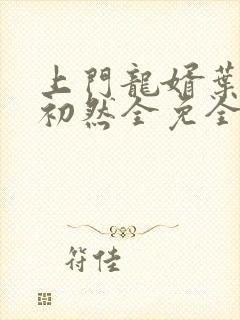 上門龍婿葉
初然全免全
符佳